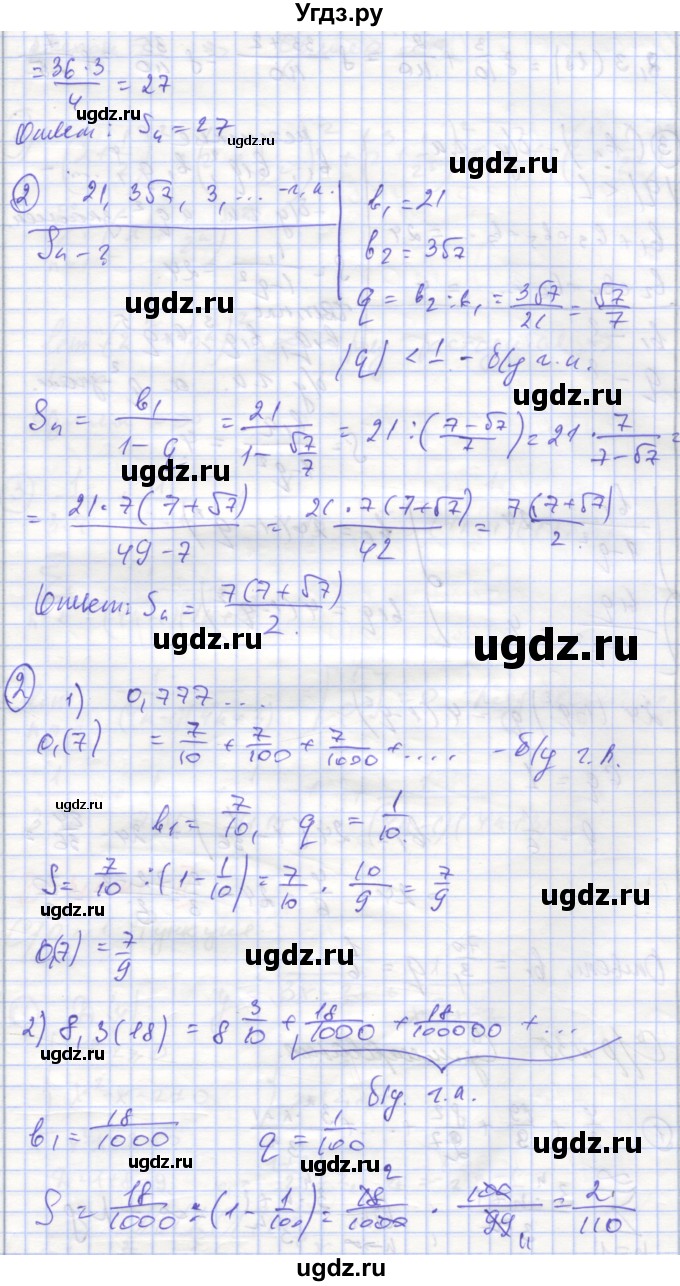 Угдз.ру
= 36·3/4 = 27
Ответ: Sₙ = 27
ugdz.ru
ugdz.ru
ugdz.ru
② 21, 3√7, 3, ... - г.п.
b₁ = 21
Sₙ - ?
b₂ = 3√7
ugdz.ru
ugdz.ru
q = b₂ : b₁ = 3√7/21 = √7/7
|q| < 1 - б/у г.п.
ugdz.ru
Sₙ = b₁/(1-q) = 21/(1-√7/7) = 21 : ((7-√7)/7) = 21 · 7/(7-√7) =
ugdz.ru
= 21·7(7+√7)/(49-7) = 21·7(7+√7)/42 = 7(7+√7)/2
ugdz.ru
ugdz.ru
Ответ: Sₙ = 7(7+√7)/2.
ugdz.ru
ugdz.ru
② 1) 0,777...
0,(7) = 7/10 + 7/100 + 7/1000 + .... - б/у г.п.
ugdz.ru
ugdz.ru
b₁ = 7/10, q = 1/10.
S = 7/10 : (1 - 1/10) = 7/10 · 10/9 = 7/9
ugdz.ru
ugdz.ru
0,(7) = 7/9
ugdz.ru
2) 8,3(18) = 8 3/10 + 18/1000 + 18/100000 + ...
ugdz.ru
ugdz.ru
б/у. г.п.
b₁ = 18/1000 q = 1/100
ugdz.ru
ugdz.ru
ugdz.ru
S = 18/1000 : (1 - 1/100) = 18/1000 · 100/99 = 2/110
2
11
ugdz.ru
ugdz.ru
ugdz.ru